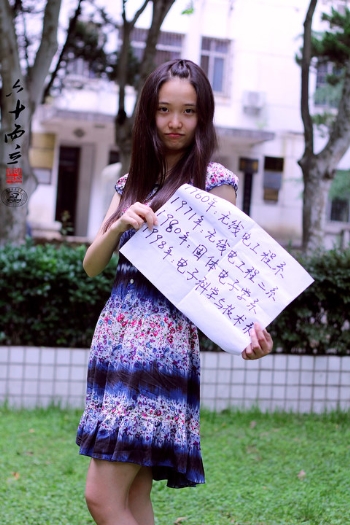 六十而立
1960年,无线电工程系
1971年,无线电工程二系
1980年,固体电子学系
1998年,电子科学与技术系